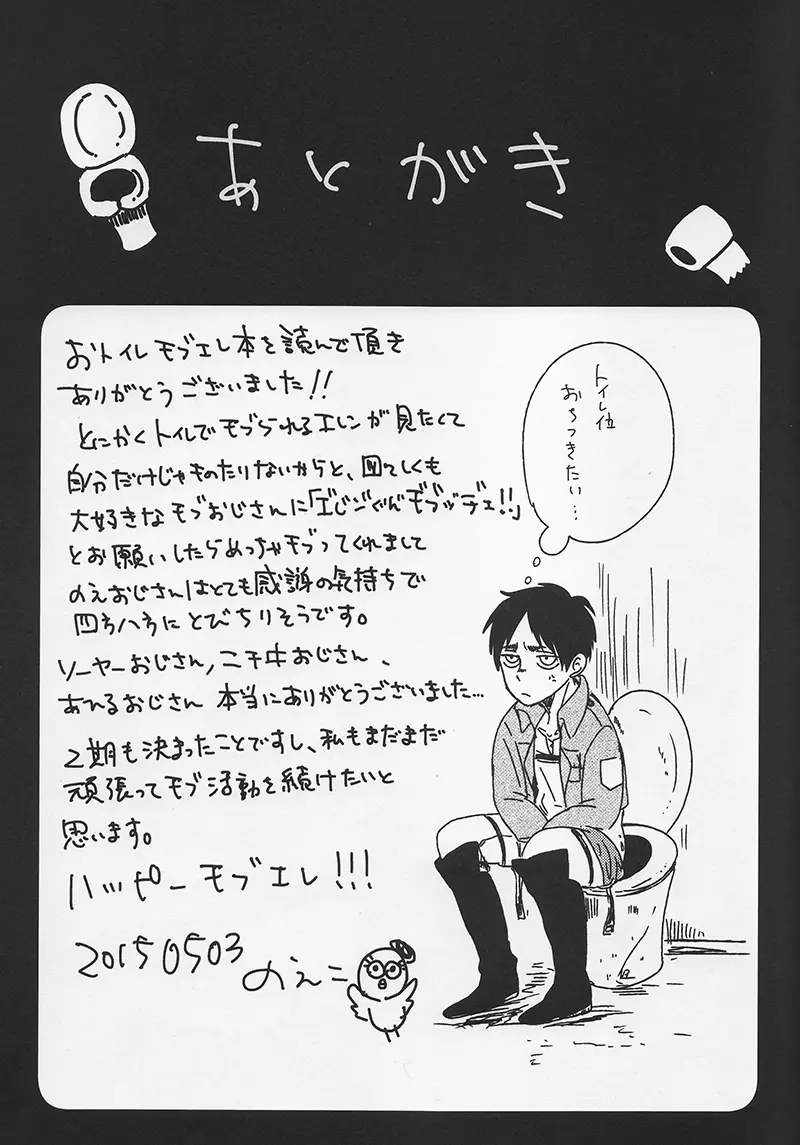 あとがき
おトイレモブエレ本を読んで頂き
ありがとうございました!!
とにかくトイレでモブられるエレンが見たくて
自分だけじゃものたりないからと、
大好きなモブおじさんに「
とお願いしたらめっちゃモブってくれまして
のえおじさんはとても感謝の気持ちで
四方八方にとびちりそうです。
ソーヤーおじさん,ニキ中おじさん、
あひるおじさん 本当にありがとうございました…
2期も決まったことですし、私もまだまだ
頑張ってモブ活動を続けたいと
思います。
ハッピーモブエレ!!!
20150503 のえこ
トイレ位
おちつきたい…